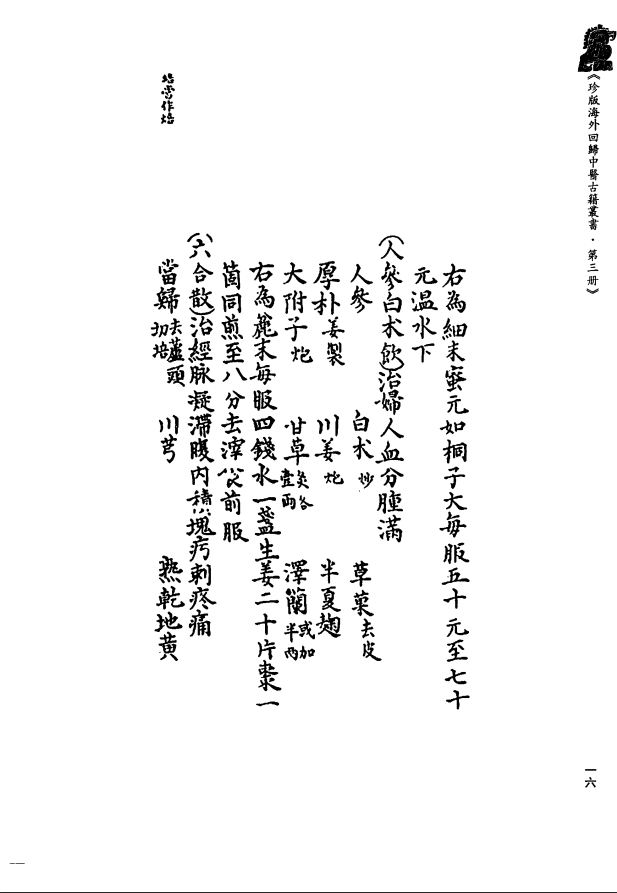 《珍版海外回歸中醫古籍叢書·第三册》
右為細末蜜元如桐子大每服五十元至七十
元温水下
(人參白朮飲)治婦人血分腫滿
人參 白朮炒 草菓去皮
厚朴姜製 川姜炮 半夏麯
大附子炮 甘草炙各壹兩 澤蘭或加半兩
右為麄末每服四錢水一盞生姜二十片棗一
箇同煎至八分去滓食前服
(六合散)治經脉凝滯腹内積塊疠刺疼痛
當歸去蘆頭切培 川芎 熟乾地黄
培當作焙
一六